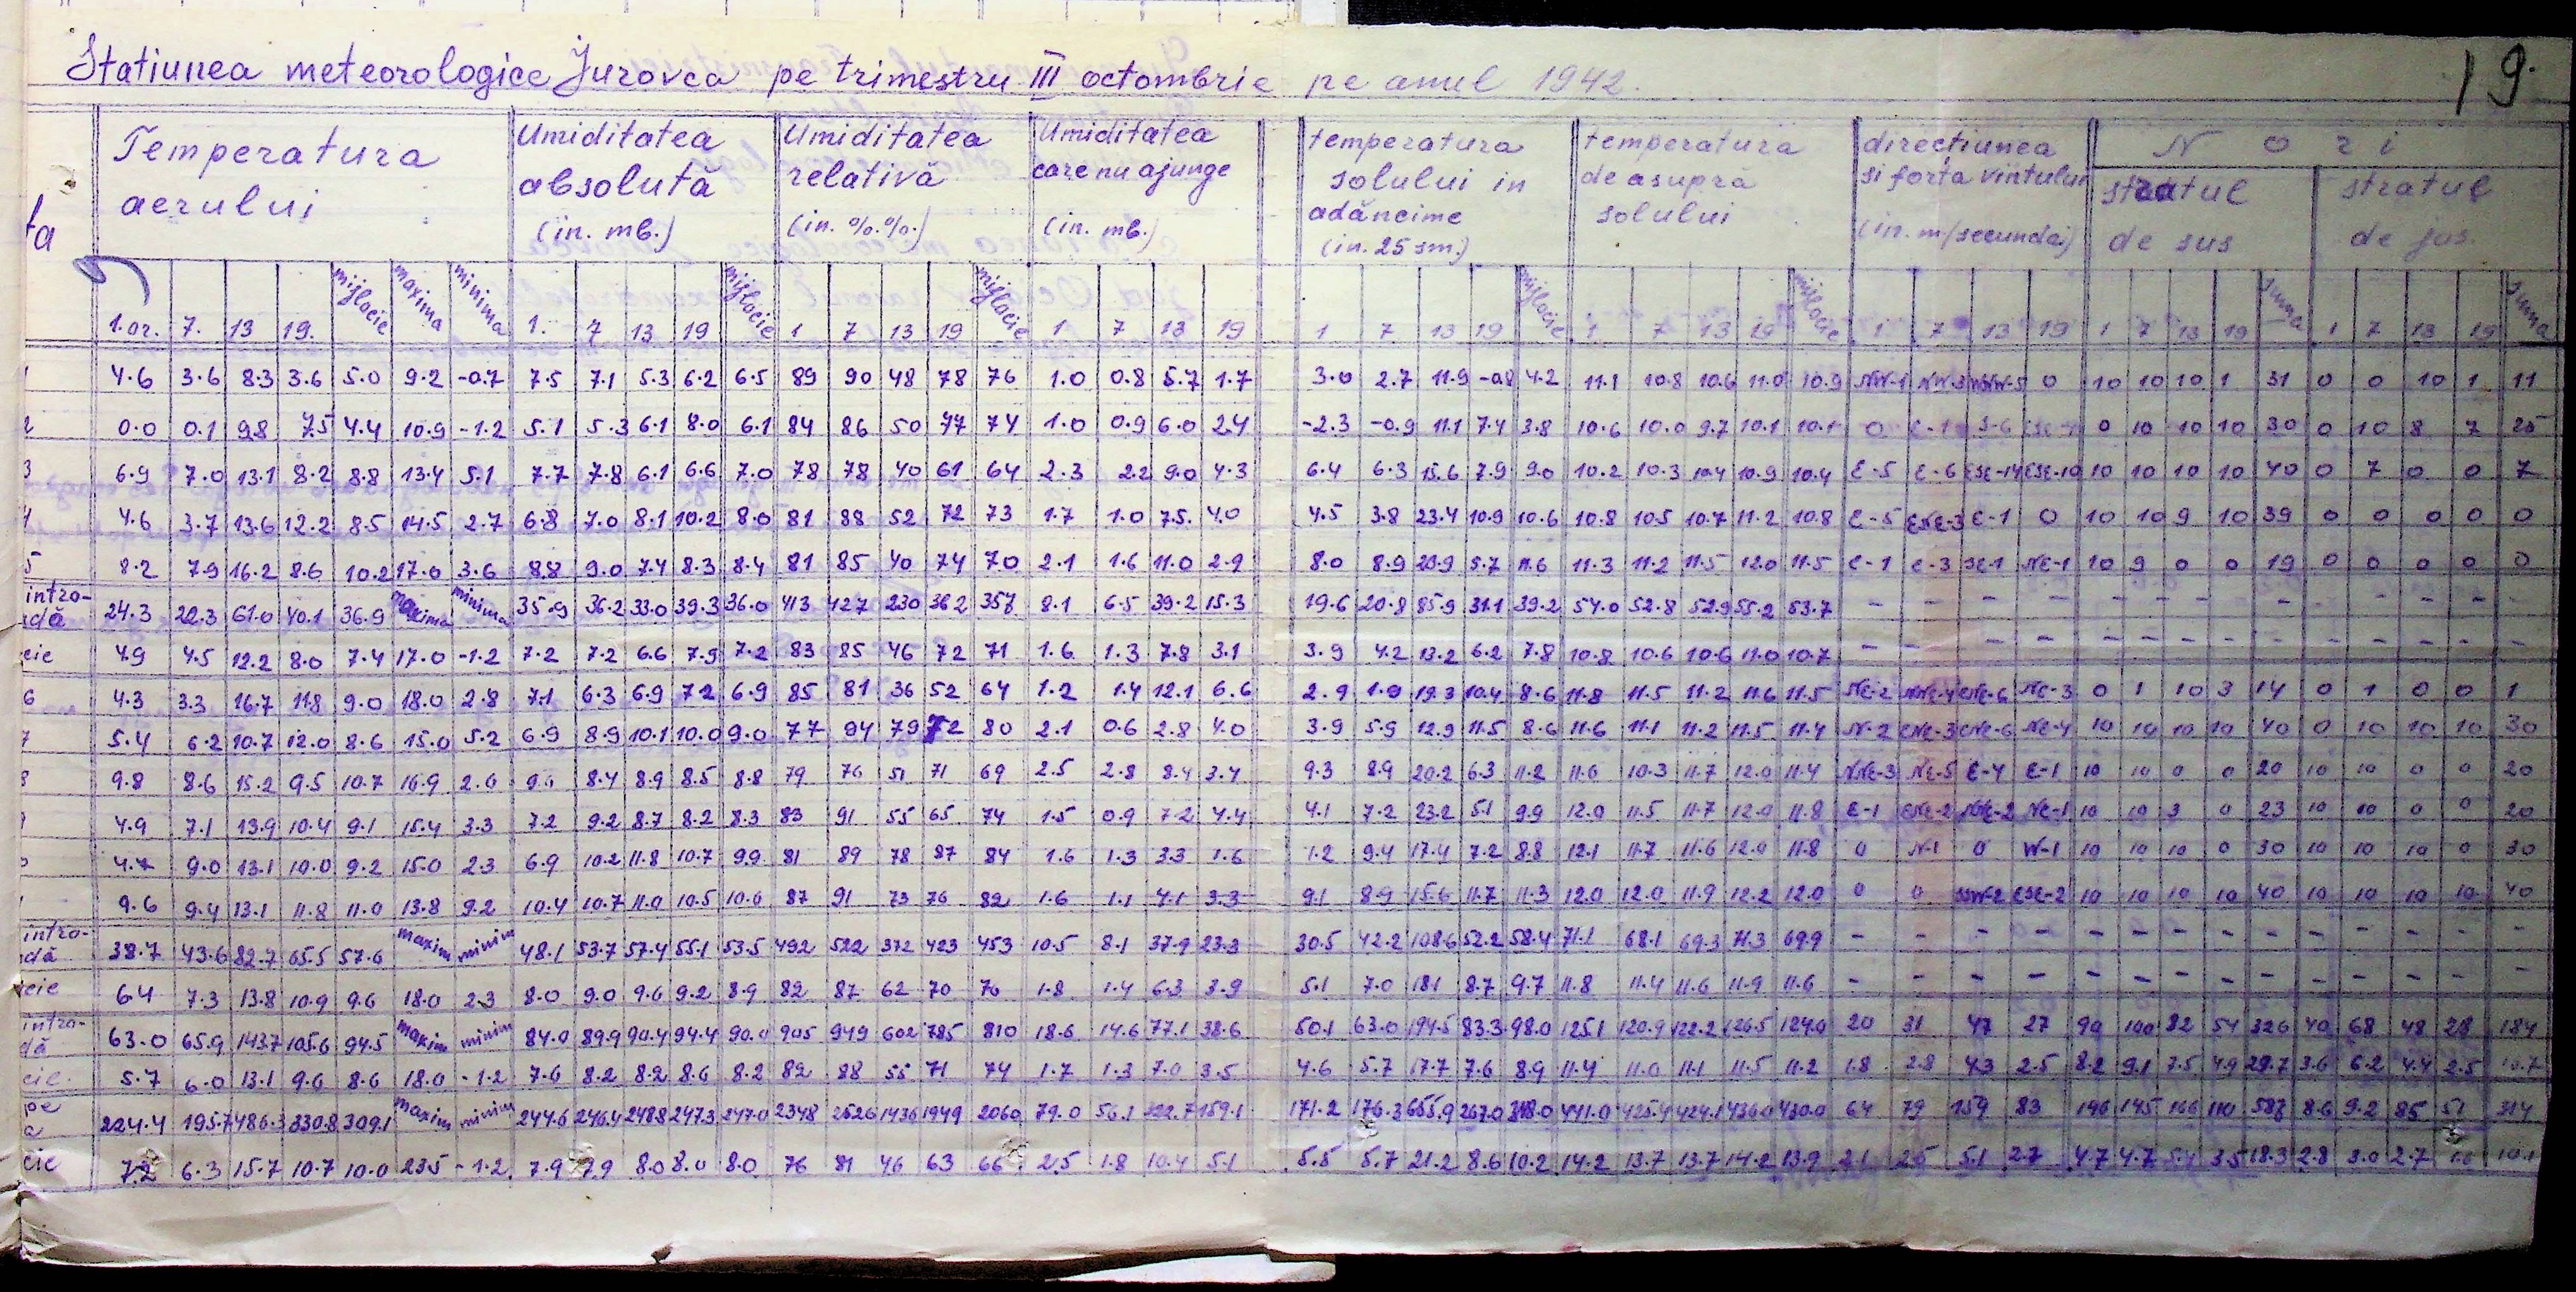 19.
Statiunea meteorologice Jurovca pe trimestru III octombrie pe anul 1942.
ta
Temperatura aerului
Umiditatea absolută (in. mb.)
Umiditatea relativă (in. %.%.)
Umiditatea care nu ajunge (in. mb.)
temperatura solului in adâncime (in. 25 sm.)
temperatura de asupra solului
direcțiunea si forta vintului (in. m/secunda)
Nori
stratul de sus
stratul de jos.
1.or. 7. 13 19. mijlocie maxima minima 1. 7 13 19 mijlocie 1 7 13 19 mijlocie 1 7 13 19 1 7 13 19 mijlocie 1 7 13 19 mijlocie 1 7 13 19 1 7 13 19 suma 1 7 13 19 suma
1 4.6 3.6 8.3 3.6 5.0 9.2 -0.7 7.5 7.1 5.3 6.2 6.5 89 90 48 78 76 1.0 0.8 5.7 1.7 3.0 2.7 11.9 -0.8 4.2 11.1 10.8 10.6 11.0 10.9 NW-1 NW-3 WNW-5 0 10 10 10 1 31 0 0 10 1 11
2 0.0 0.1 9.8 7.5 4.4 10.9 -1.2 5.1 5.3 6.1 8.0 6.1 84 86 50 77 74 1.0 0.9 6.0 2.4 -2.3 -0.9 11.1 7.4 3.8 10.6 10.0 9.7 10.1 10.1 0 E-1 0 10 10 10 30 0 10 8 7 25
3 6.9 7.0 13.1 8.2 8.8 13.4 5.1 7.7 7.8 6.1 6.6 7.0 78 78 40 61 64 2.3 2.2 9.0 4.3 6.4 6.3 15.6 7.9 9.0 10.2 10.3 10.4 10.9 10.4 E-5 E-6 ESE-14 ESE-10 10 10 10 10 40 0 7 0 0 7
4 4.6 3.7 13.6 12.2 8.5 14.5 2.7 6.8 7.0 8.1 10.2 8.0 81 88 52 72 73 1.7 1.0 7.5. 4.0 4.5 3.8 23.4 10.9 10.6 10.8 10.5 10.7 11.2 10.8 E-5 ENE-3 E-1 0 10 10 9 10 39 0 0 0 0 0
5 8.2 7.9 16.2 8.6 10.2 17.0 3.6 8.8 9.0 7.4 8.3 8.4 81 85 40 74 70 2.1 1.6 11.0 2.9 8.0 8.9 20.9 5.7 11.6 11.3 11.2 11.5 12.0 11.5 E-1 E-3 SE-1 NE-1 10 9 0 0 19 0 0 0 0 0
intro- adă 24.3 22.3 61.0 40.1 36.9 maxima minima 35.9 36.2 33.0 39.3 36.0 413 427 230 362 357 8.1 6.5 39.2 15.3 19.6 20.8 85.9 31.1 39.2 54.0 52.8 52.9 55.2 53.7 - - - - - - - - - - - - - -
cie 4.9 4.5 12.2 8.0 7.4 17.0 -1.2 7.2 7.2 6.6 7.9 7.2 83 85 46 72 71 1.6 1.3 7.8 3.1 3.9 4.2 13.2 6.2 7.8 10.8 10.6 10.6 11.0 10.7 - - - - - - - - - - - - - -
6 4.3 3.3 16.7 11.8 9.0 18.0 2.8 7.1 6.3 6.9 7.2 6.9 85 81 36 52 64 1.2 1.4 12.1 6.6 2.9 1.0 19.3 10.4 8.6 11.8 11.5 11.2 11.6 11.5 NE-2 NNE-4 ENE-6 NE-3 0 1 10 3 14 0 1 0 0 1
7 5.4 6.2 10.7 12.0 8.6 15.0 5.2 6.9 8.9 10.1 10.0 9.0 77 94 79 72 80 2.1 0.6 2.8 4.0 3.9 5.9 12.9 11.5 8.6 11.6 11.1 11.2 11.5 11.4 N-2 ENE-3 ENE-6 NE-4 10 10 10 10 40 0 10 10 10 30
8 9.8 8.6 15.2 9.5 10.7 16.9 2.0 8.4 8.9 8.5 8.8 79 76 51 71 69 2.5 2.8 8.4 3.4 9.3 8.9 20.2 6.3 11.2 11.6 10.3 11.7 12.0 11.4 NNE-3 NE-5 E-4 E-1 10 10 0 0 20 10 10 0 0 20
4.9 7.1 13.9 10.4 9.1 15.4 3.3 7.2 9.2 8.7 8.2 8.3 83 91 55 65 74 1.5 0.9 7.2 4.4 4.1 7.2 23.2 5.1 9.9 12.0 11.5 11.7 12.0 11.8 E-1 ENE-2 NNE-2 NE-1 10 10 3 0 23 10 10 0 0 20
4.7 9.0 13.1 10.0 9.2 15.0 2.3 6.9 10.2 11.8 10.7 9.9 81 89 78 87 84 1.6 1.3 3.3 1.6 1.2 9.4 17.4 7.2 8.8 12.1 11.7 11.6 12.0 11.8 0 N-1 0 W-1 10 10 10 0 30 10 10 10 0 30
9.6 9.4 13.1 11.8 11.0 13.8 9.2 10.4 10.7 11.0 10.5 10.6 87 91 73 76 82 1.6 1.1 4.1 3.3 9.1 8.9 15.6 11.7 11.3 12.0 12.0 11.9 12.2 12.0 0 0 SSW-2 ESE-2 10 10 10 10 40 10 10 10 10 40
intro- dă 38.7 43.6 82.7 65.5 57.6 maxim minim 48.1 53.7 57.4 55.1 53.5 492 522 372 423 453 10.5 8.1 37.9 23.3 30.5 42.2 108.6 52.2 58.4 71.1 68.1 69.3 71.3 69.9 - - - - - - - - - - - - - -
cie 6.4 7.3 13.8 10.9 9.6 18.0 2.3 8.0 9.0 9.6 9.2 8.9 82 87 62 70 76 1.8 1.4 6.3 3.9 5.1 7.0 18.1 8.7 9.7 11.8 11.4 11.6 11.9 11.6 - - - - - - - - - - - - - -
intro- dă 63.0 65.9 143.7 105.6 94.5 maxim minim 84.0 89.9 90.4 94.4 90.0 905 949 602 785 810 18.6 14.6 77.1 38.6 50.1 63.0 194.5 83.3 98.0 125.1 120.9 122.2 126.5 124.0 20 31 47 27 90 100 82 54 326 40 68 48 28 184
cie. 5.7 6.0 13.1 9.6 8.6 18.0 -1.2 7.6 8.2 8.2 8.6 8.2 82 88 55 71 74 1.7 1.3 7.0 3.5 4.6 5.7 17.7 7.6 8.9 11.4 11.0 11.1 11.5 11.2 1.8 2.8 4.3 2.5 8.2 9.1 7.5 4.9 29.7 3.6 6.2 4.4 2.5
pe a 224.4 195.7 486.3 330.8 309.1 maxim minim 244.6 246.4 248.8 247.3 247.0 2348 2526 1436 1949 2060 79.0 56.1 322.7 159.1 171.2 176.3 655.9 267.0 318.0 441.0 425.4 424.1 436.0 430.0 64 79 159 83 146 145 166 110 8.6 9.2 85 51 314
cie 7.2 6.3 15.7 10.7 10.0 23.5 -1.2. 7.9 7.9 8.0 8.0 8.0 76 81 46 63 66 2.5 1.8 10.4 5.1 5.5 5.7 21.2 8.6 10.2 14.2 13.7 13.7 14.2 13.9 2.1 2.5 5.1 2.7 4.7 4.7 5.4 3.5 18.3 2.8 3.0 2.7